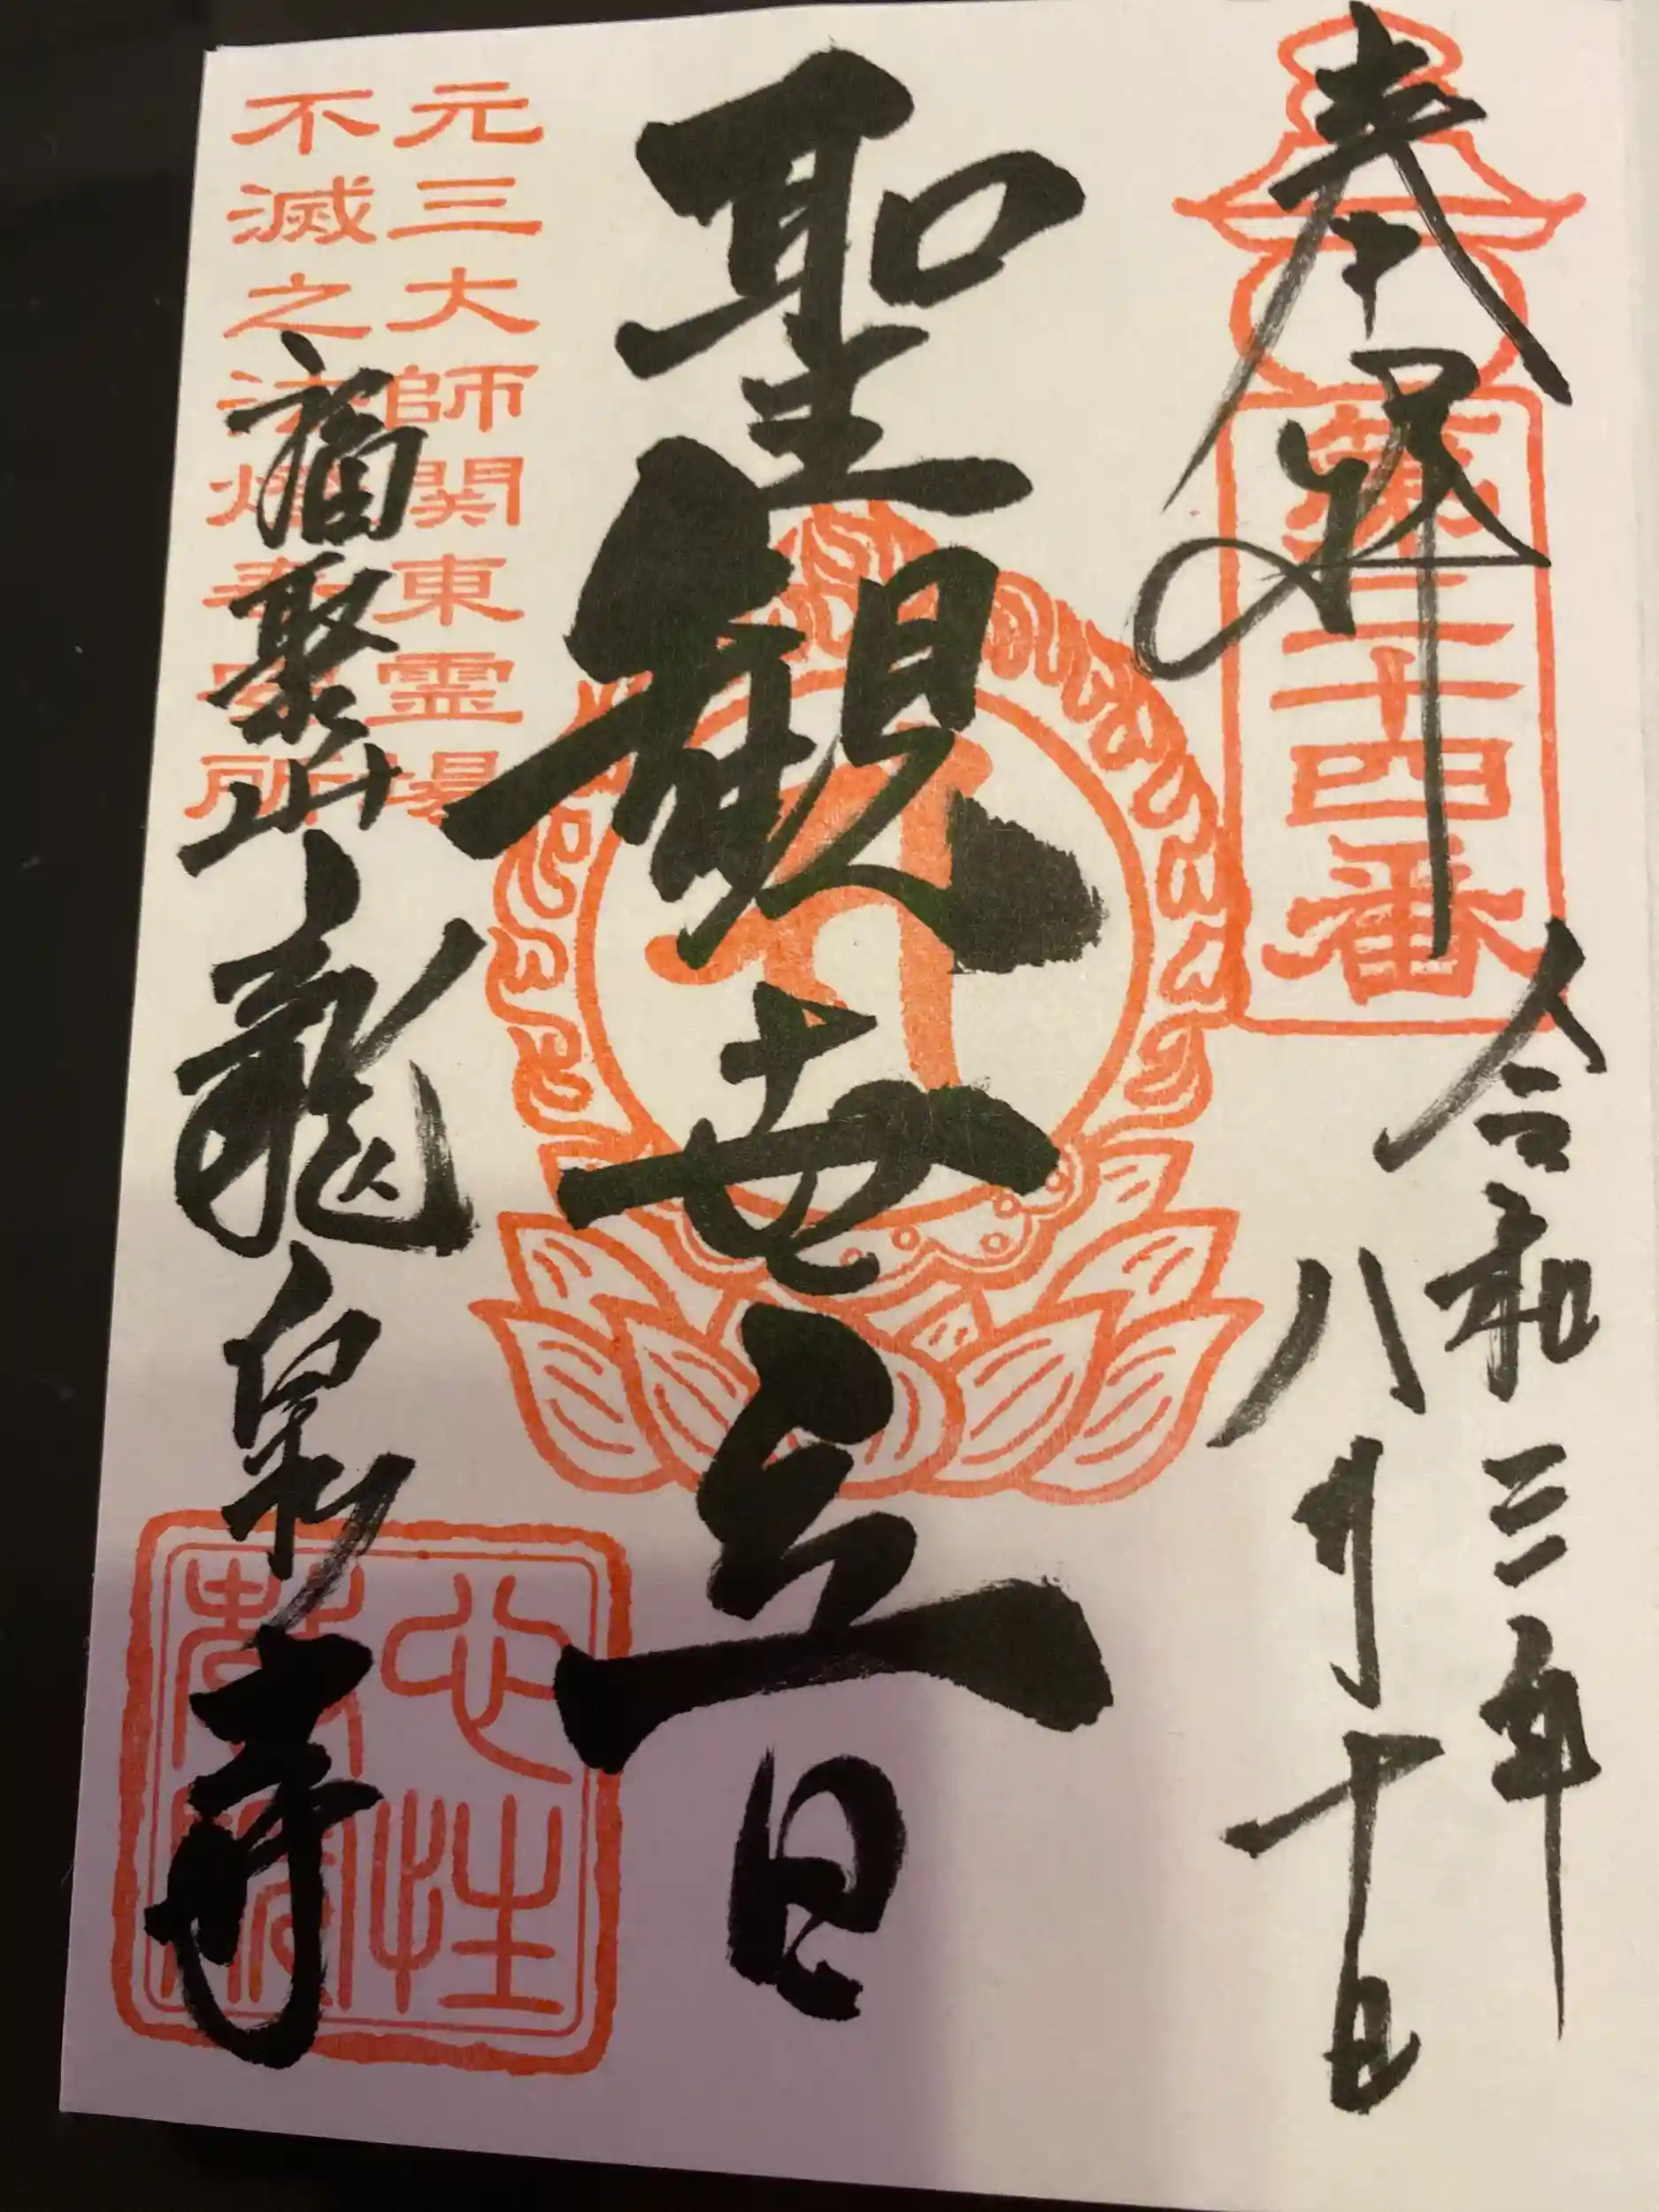 奉拝
第二十四番
令和三年
八月十日
聖観世音
元三大師関東霊場
不滅之法燈奉安所
福聚山
龍泉寺
心性